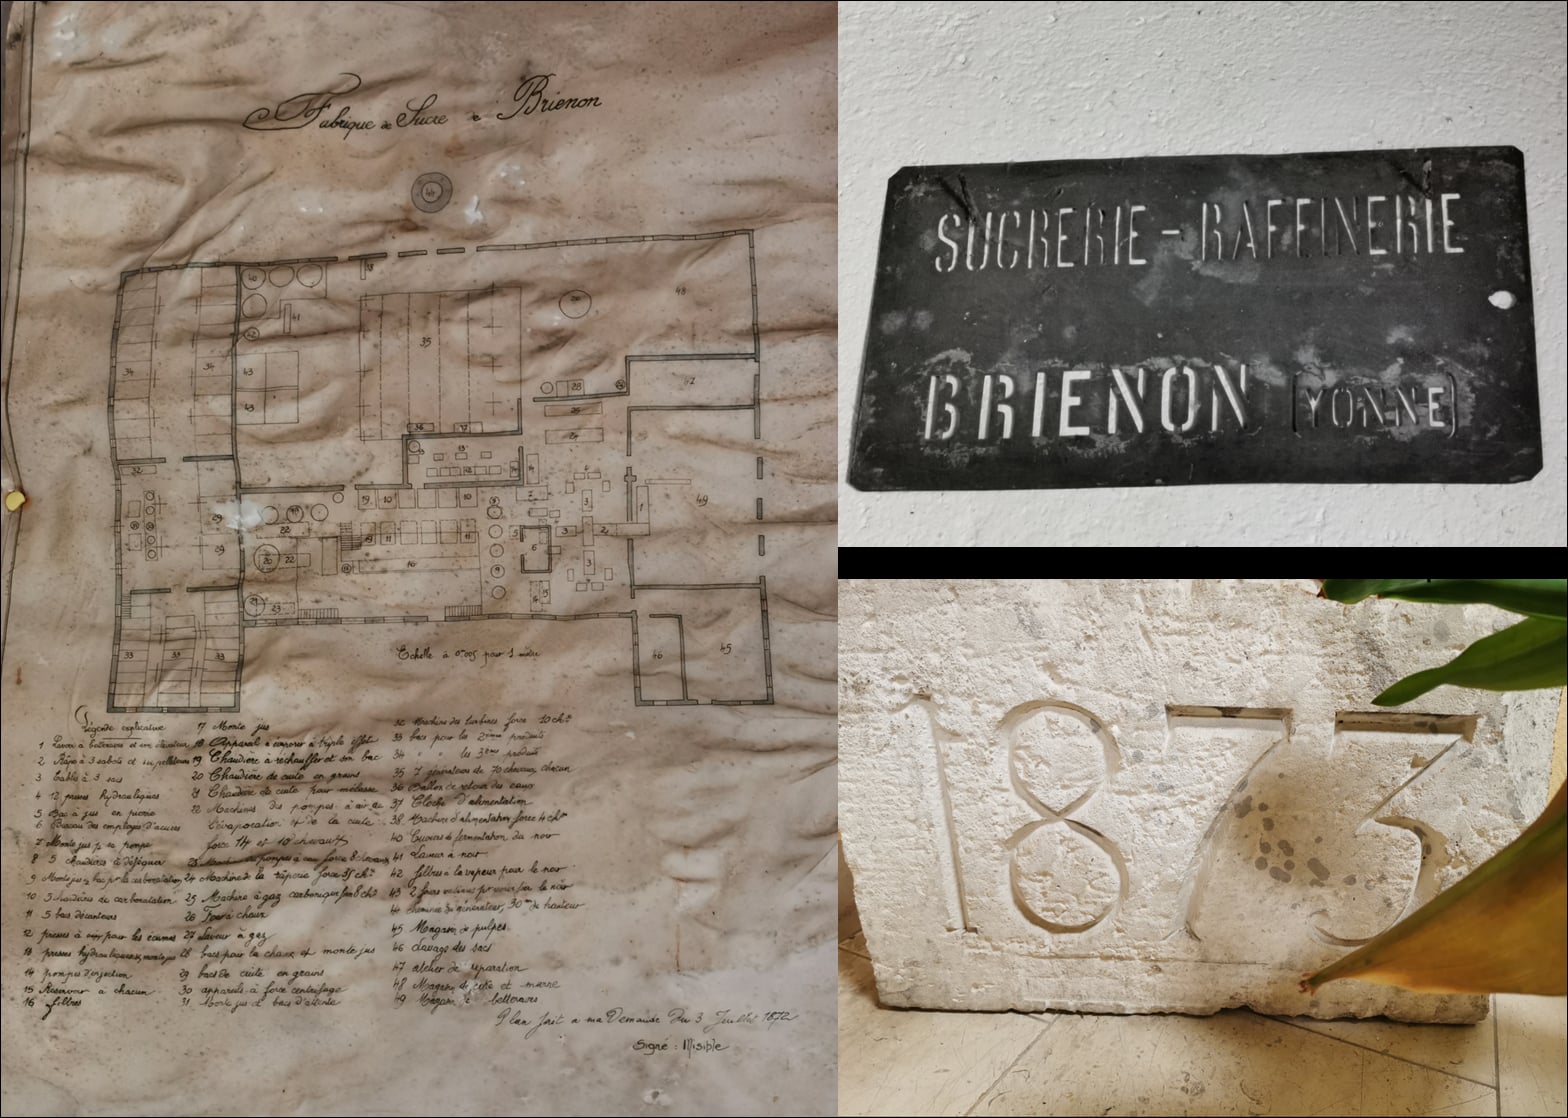 Fabrique de Sucre à Brienon
44
Echelle à 0m005 pour 1 mètre
Légende explicative
1 Laveur à betteraves et son élévateur
2 Râpe à 3 sabots et sa pelleteuse
3 tables à 3 sacs
4 12 presses hydrauliques
5 Bac à jus en pierre
6 Bureau des employés d'accises
7 Monte jus
8 5 chaudières à déféquer
9 Monte jus
10 5 chaudières de carbonatation
11 5 bacs décanteurs
12 presses à pour les écumes
13 presses hydrauliques
14 pompes d'injection
15 Réservoir à chacun
16 filtres
17 Monte jus
18 Appareil à évaporer à triple effet
19 Chaudière à réchauffer et son bac
20 Chaudière de cuite en grains
21 Chaudière de cuite pour mélasse
22 Machines des pompes à air de
l'évaporation & de la cuite
force 14 et 10 chevaux
23 pompes à eau force 8 chevaux
24 Machine de la râperie force 35 chx
25 Machine à gaz carbonique
26 Four à chaux
27 Laveur à gaz
28 bacs pour la chaux et monte jus
29 bacs de cuite en grains
30 appareils à force centrifuge
31 Monte jus et bacs d'attente
32 Machine des turbines force 10 chx
33 bacs pour les 2èmes produits
34 " " les 3èmes produits
35 7 générateurs de 70 chevaux chacun
36 Ballon de retour des eaux
37 Cloche d'alimentation
38 Machine d'alimentation force 4 chx
40 Cuviers de fermentation du noir
41 Laveur à noir
42 filtres à la vapeur pour le noir
43 2 fours pour le noir
44 Cheminée du générateur, 30m de hauteur
45 Magasin de pulpes
46 Lavage des sacs
47 atelier de réparation
48 Magasin de
49 Magasin à betteraves
Plan fait à ma Demande Du 3 Juillet 1872
Signé : Misible
SUCRERIE - RAFFINERIE
BRIENON (YONNE)
1873